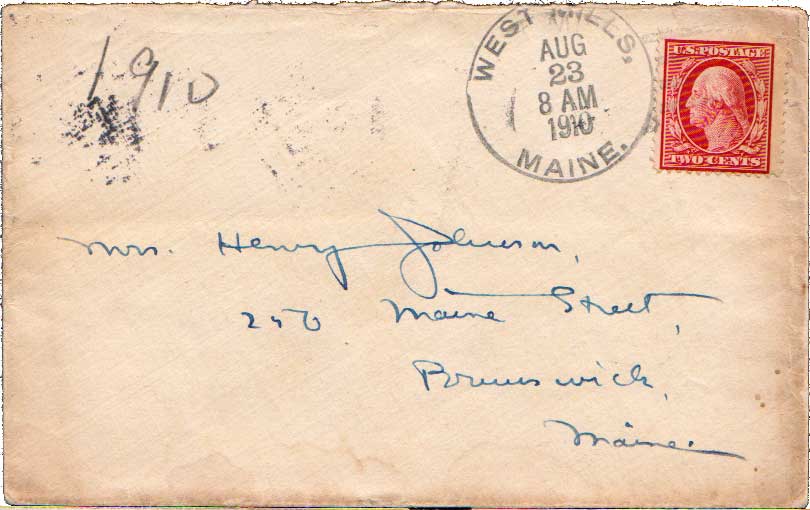 1910
WEST MILLS,
AUG
23
8 AM
1910
MAINE.
U.S. POSTAGE
TWO CENTS
Mrs. Henry Johnson,
250 Maine Street,
Brunswick,
Maine.